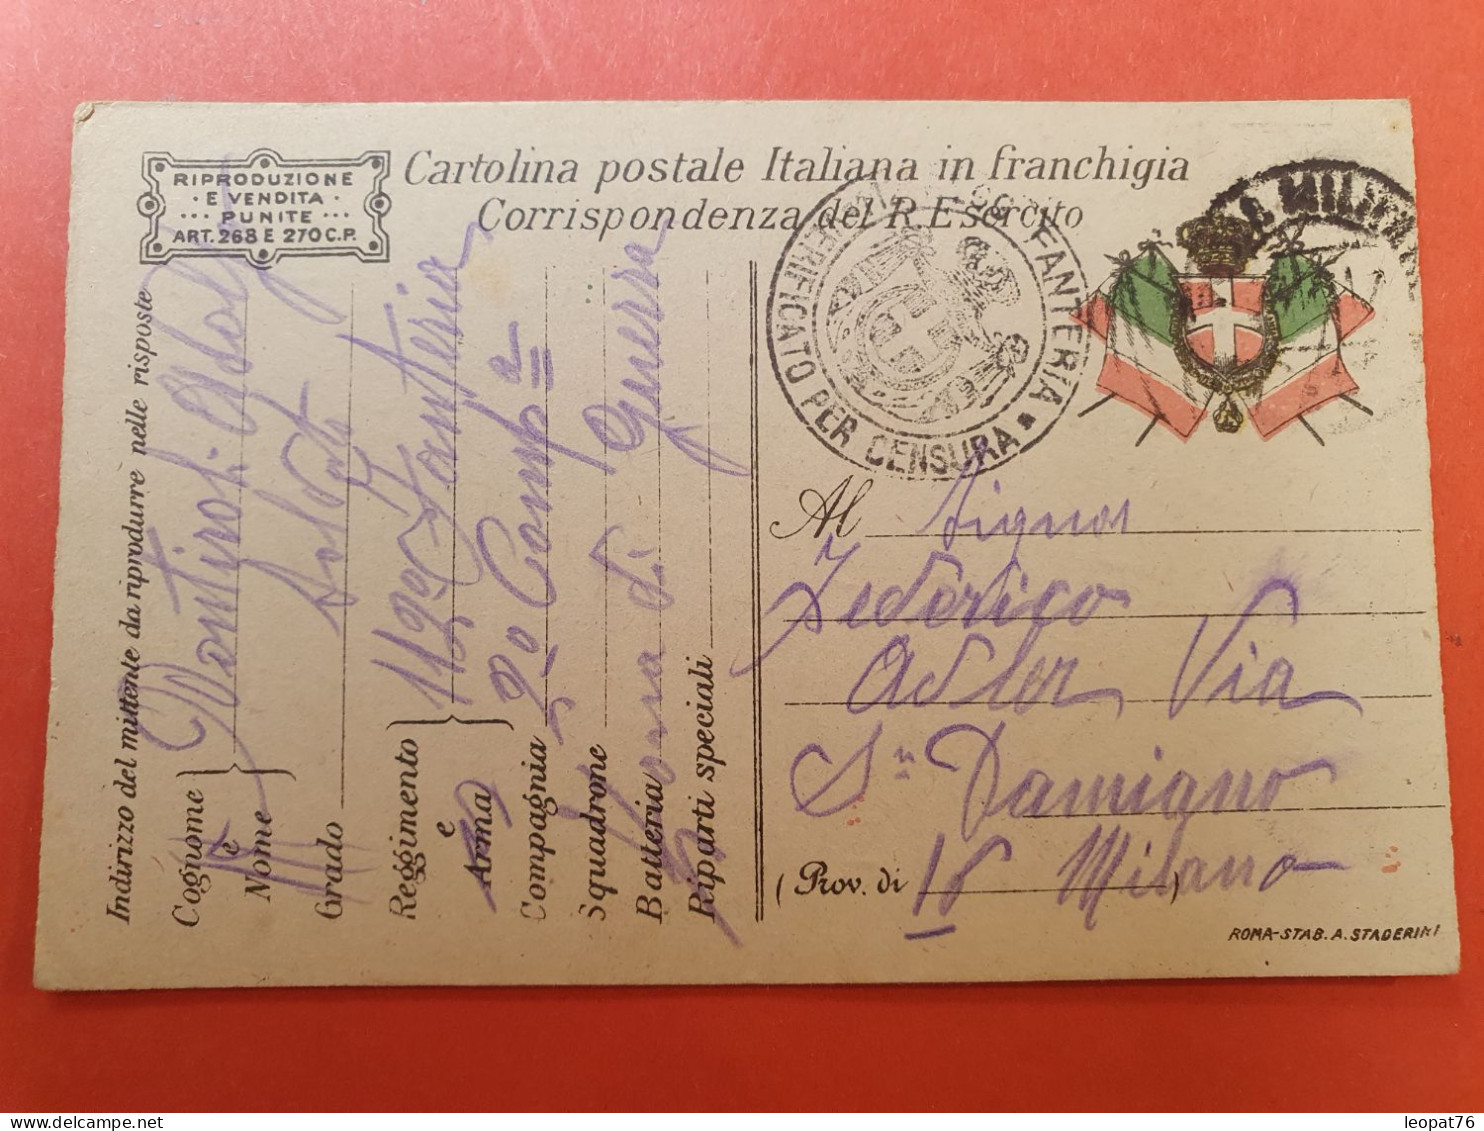 RIPRODUZIONE
· E VENDITA ·
··· PUNITE ···
ART. 268 E 270 C.P.
Cartolina postale Italiana in franchigia
Corrispondenza del R. Esercito
FANTERIA
VERIFICATO PER CENSURA
Indirizzo del mittente da riprodurre nelle risposte
Cognome
e
Nome
Grado
Soldato
Reggimento
e
Arma
112º Fanteria
Compagnia
9º Compª
Squadrone
Batteria
Zona di Guerra
Riparti speciali
Al Signor
Federico
Adler Via
Sn Damiano
(Prov. di 16 Milano)
ROMA-STAB. A. STADERINI
leopat76